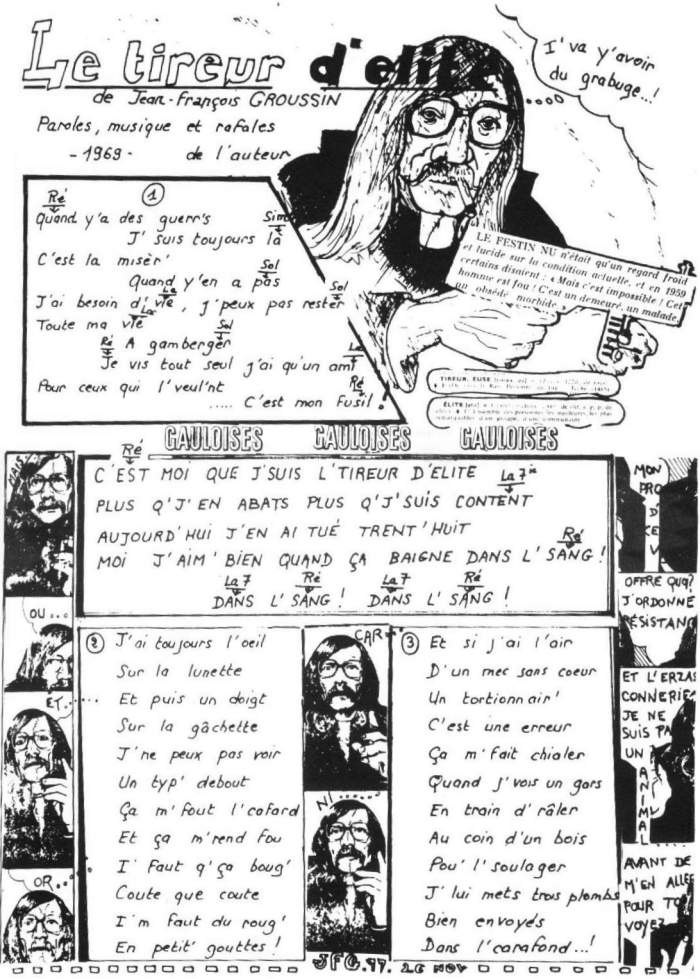 Le tireur d'elite
de Jean-François GROUSSIN
Paroles, musique et rafales
-1969- de l'auteur
I' va y'avoir
du grabuge...!
LE FESTIN NU n'était qu'un regard froid
et lucide sur la condition actuelle, et en 1959
certains disaient : « Mais c'est impossible ! Cet
homme est fou ! C'est un demeuré, un malade,
un obsédé morbide
TIREUR, EUSE
ÉLITE
①
Ré Sim
Quand y'a des guerr's
J' suis toujours là
C'est la misèr' Sol
Quand y'en a pas
La Sol
J'ai besoin d' vie, j'peux pas rester
La
Toute ma vie Sol
Ré A gamberger
La
Je vis tout seul j'ai qu'un ami
Pour ceux qui l'veul'nt Ré
..... C'est mon Fusil !
GAULOISES GAULOISES GAULOISES
Ré
C'EST MOI QUE J'SUIS L'TIREUR D'ELITE La 7
PLUS Q'J'EN ABATS PLUS Q'J'SUIS CONTENT
AUJOURD'HUI J'EN AI TUÉ TRENT'HUIT Ré
MOI J'AIM' BIEN QUAND ÇA BAIGNE DANS L'SANG !
La7 Ré La7 Ré
DANS L'SANG ! DANS L'SANG !
② J'ai toujours l'oeil
Sur la lunette
Et puis un doigt
Sur la gâchette
J'ne peux pas voir
Un typ' debout
Ça m'fout l'cafard
Et ça m'rend fou
I' faut q'ça boug'
Coute que coute
I'm faut du roug'
En petit' gouttes !
③ Et si j'ai l'air
D'un mec sans coeur
Un tortionnair'
C'est une erreur
Ça m'fait chialer
Quand j'vois un gars
En train d'râler
Au coin d'un bois
Pou' l'soulager
J'lui mets trois plombs
Bien envoyés
Dans l'carafond...!
OU...
ET.....
OR...
CAR...
NI....
MON
PRO
D'
CE
V
OFFRE QUQ?
J'ORDONNE
RÉSISTANC
ET L'ERZAS
CONNERIE
JE NE
SUIS PA
UN
ANIMAL
AVANT DE
M'EN ALLE
POUR TO
VOYEZ
JFG.77. 26 NOV